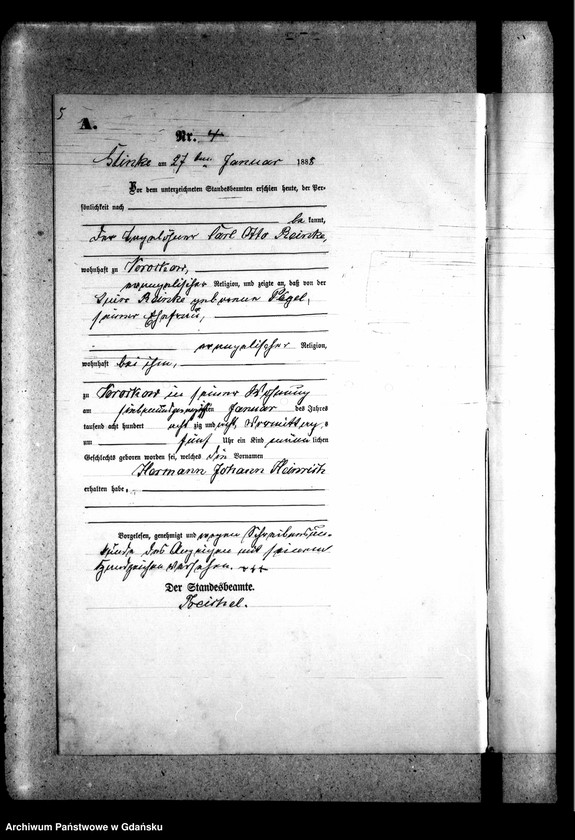 5
A.
Nr. 4
am 27ten Januar 1888
Vor dem unterzeichneten Standesbeamten erschien heute, der Per-
sönlichkeit nach
be kannt,
der Tagelöhner Carl Otto Reinke,
wohnhaft zu
evangelischer Religion, und zeigte an, daß von der
Reinke geborene Pegel,
seiner Ehefrau,
evangelischer Religion,
wohnhaft bei ihm,
zu in seiner Wohnung
am Januar des Jahres
tausend acht hundert acht zig und acht, Vormittags
um fünf Uhr ein Kind männ lichen
Geschlechts geboren worden sei, welches die Vornamen
Hermann Johann Heinrich
erhalten habe.
Vorgelesen, genehmigt und wegen Schreibensun-
kunde des Anzeigen mit seinem
Handzeichen versehen. +++
Der Standesbeamte.
Archiwum Państwowe w Gdańsku